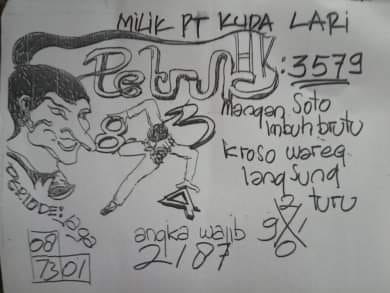 MILIK PT KUDA LARI
Petruk : 3579
Mangan Soto
imbuh brutu
kroso wareg
langsung
turu
8 3
4
PERIODE: JAGA
08
73 01
angka wajib
2187
2
9 1
0